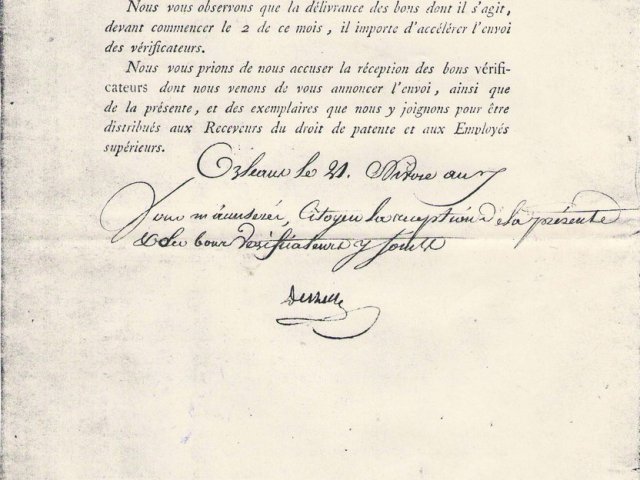 Nous vous observons que la délivrance des bons dont il s'agit,
devant commencer le 2 de ce mois, il importe d'accélérer l'envoi
des vérificateurs.
Nous vous prions de nous accuser la réception des bons vérifi-
cateurs dont nous venons de vous annoncer l'envoi, ainsi que
de la présente, et des exemplaires que nous y joignons pour être
distribués aux Receveurs du droit de patente et aux Employés
supérieurs.
Orleans le 21. Nivose an 7
Vous m'accuserez, Citoyen la reception de la présente
& des bons verificateurs y joints